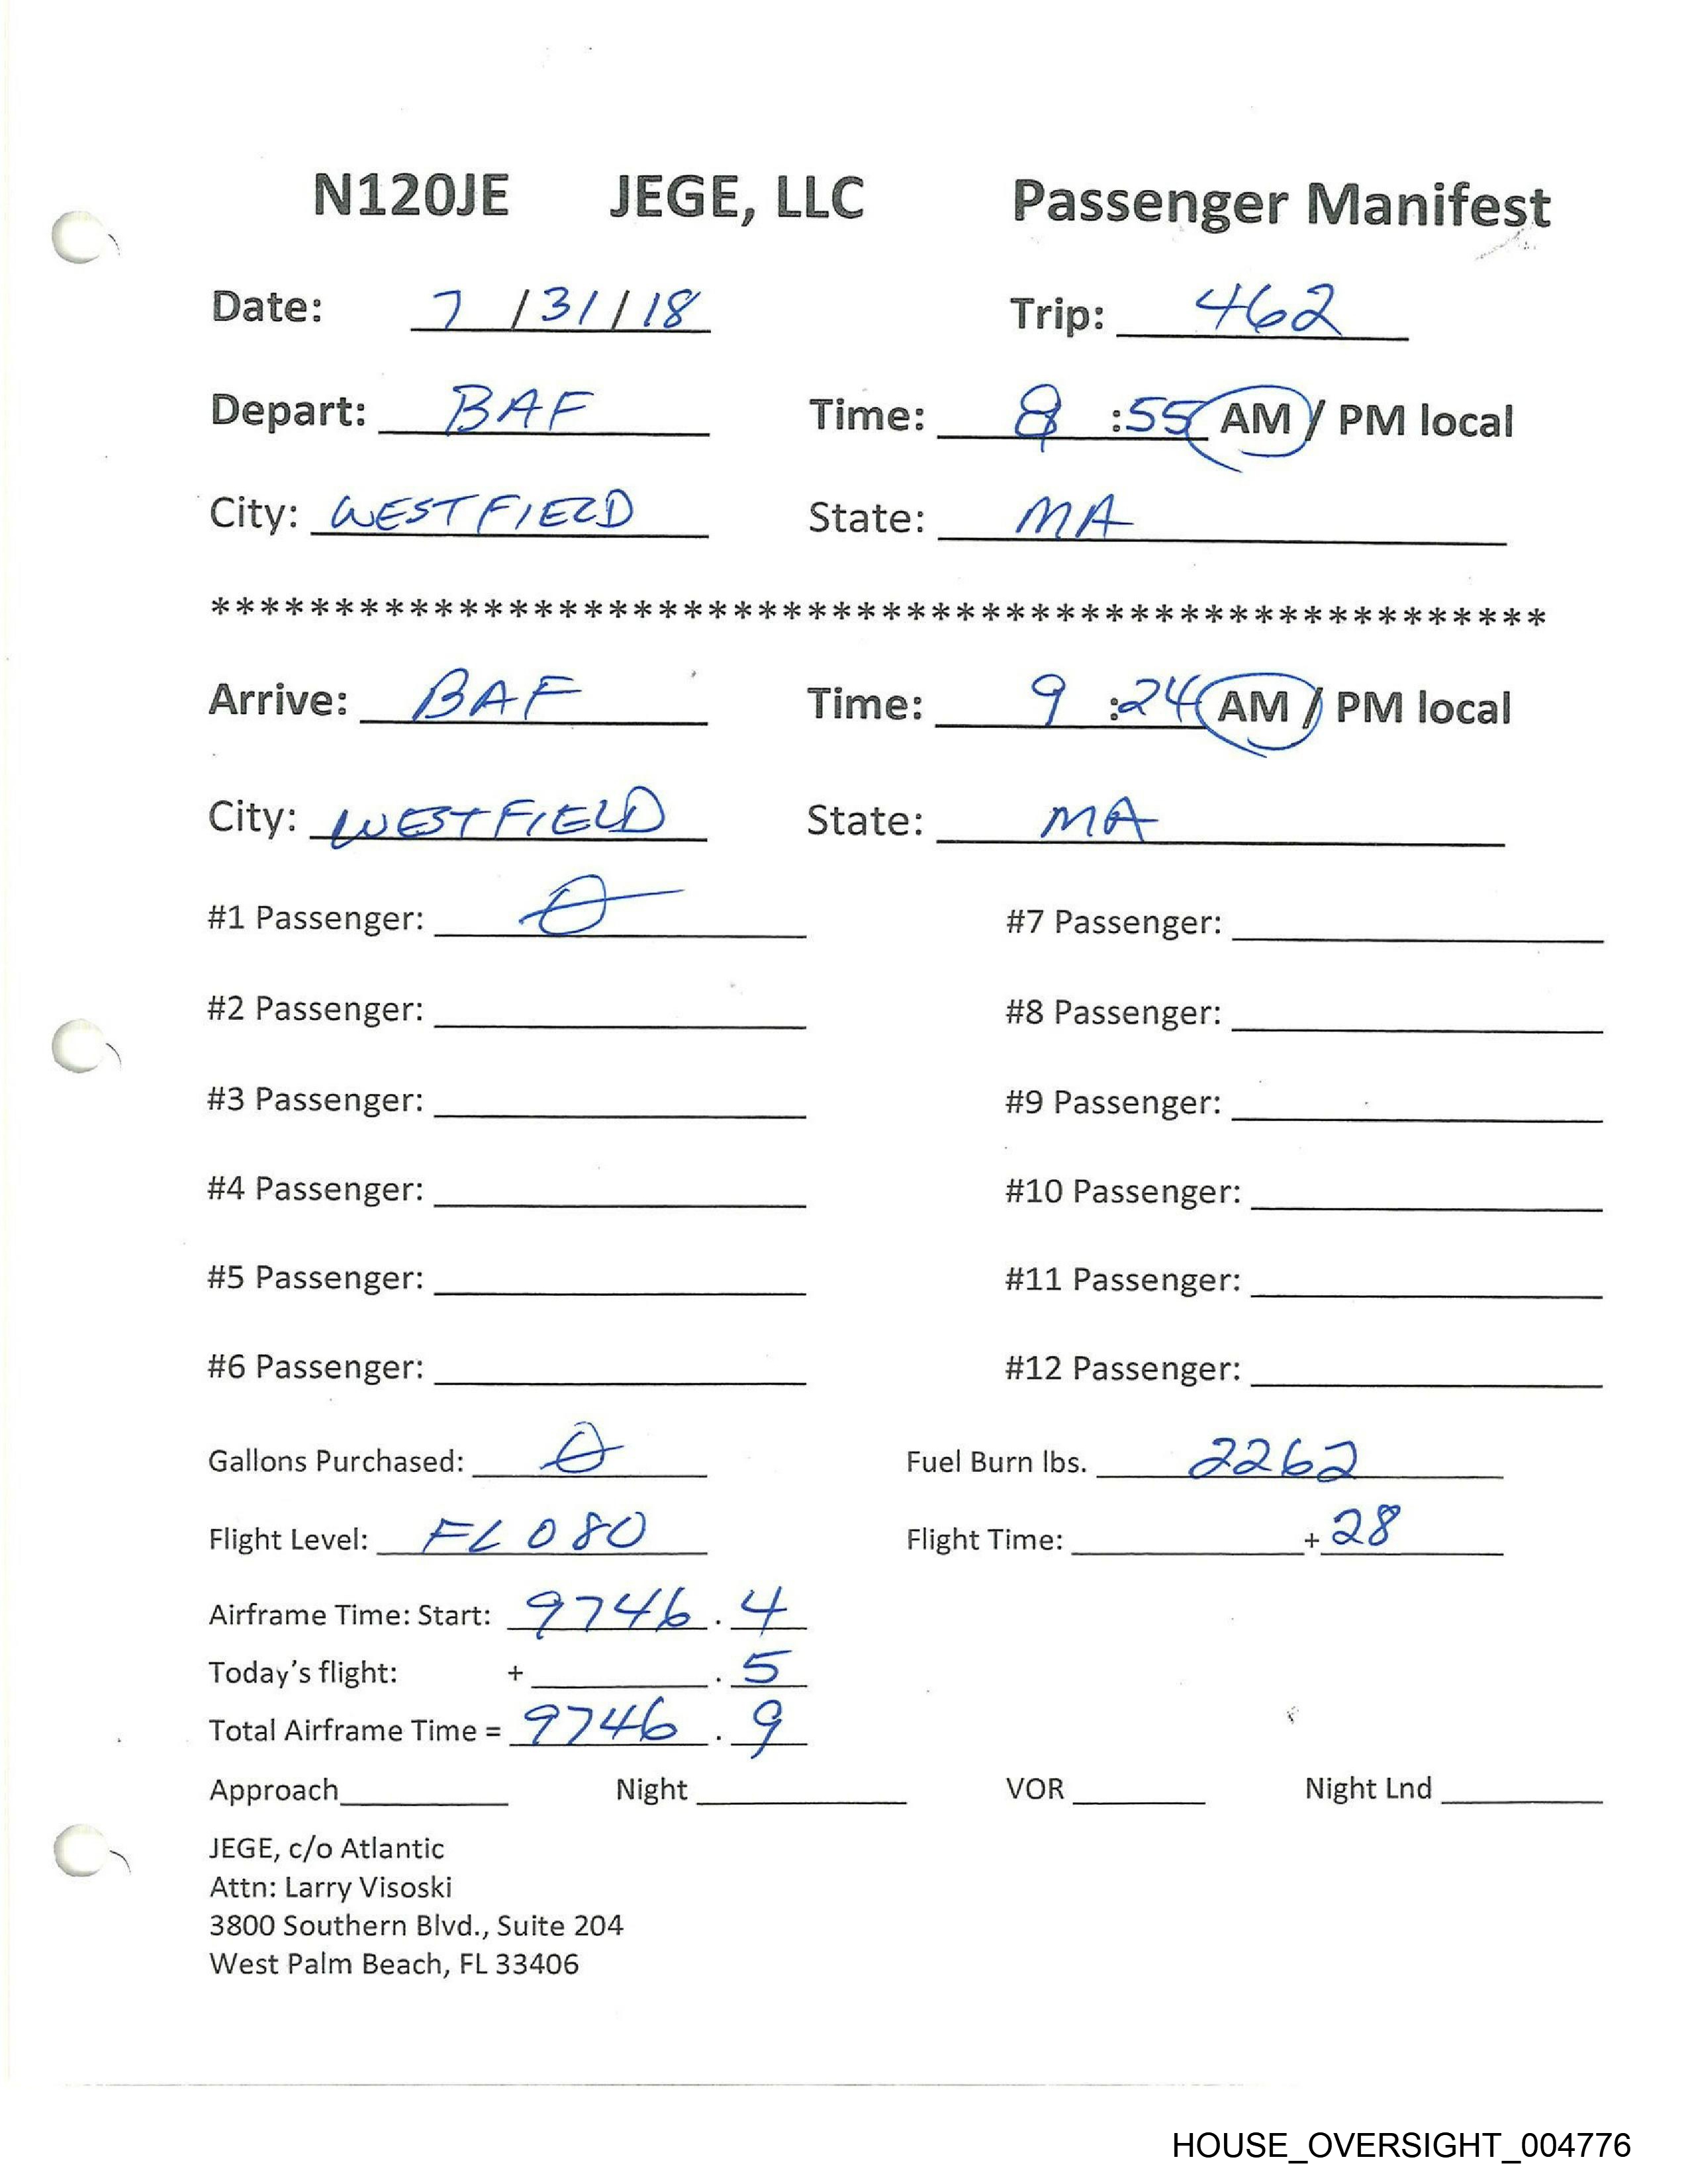 N120JE JEGE, LLC Passenger Manifest
Date: 7 / 31 / 18 Trip: 462
Depart: BAF Time: 8 :55 AM / PM local
City: WESTFIELD State: MA
******************************************************
Arrive: BAF Time: 9 :24 AM / PM local
City: WESTFIELD State: MA
#1 Passenger: 0 #7 Passenger:
#2 Passenger: #8 Passenger:
#3 Passenger: #9 Passenger:
#4 Passenger: #10 Passenger:
#5 Passenger: #11 Passenger:
#6 Passenger: #12 Passenger:
Gallons Purchased: 0 Fuel Burn lbs. 2262
Flight Level: FL 080 Flight Time: + 28
Airframe Time: Start: 9746 . 4
Today's flight: + . 5
Total Airframe Time = 9746 . 9
Approach Night VOR Night Lnd
JEGE, c/o Atlantic
Attn: Larry Visoski
3800 Southern Blvd., Suite 204
West Palm Beach, FL 33406
HOUSE_OVERSIGHT_004776